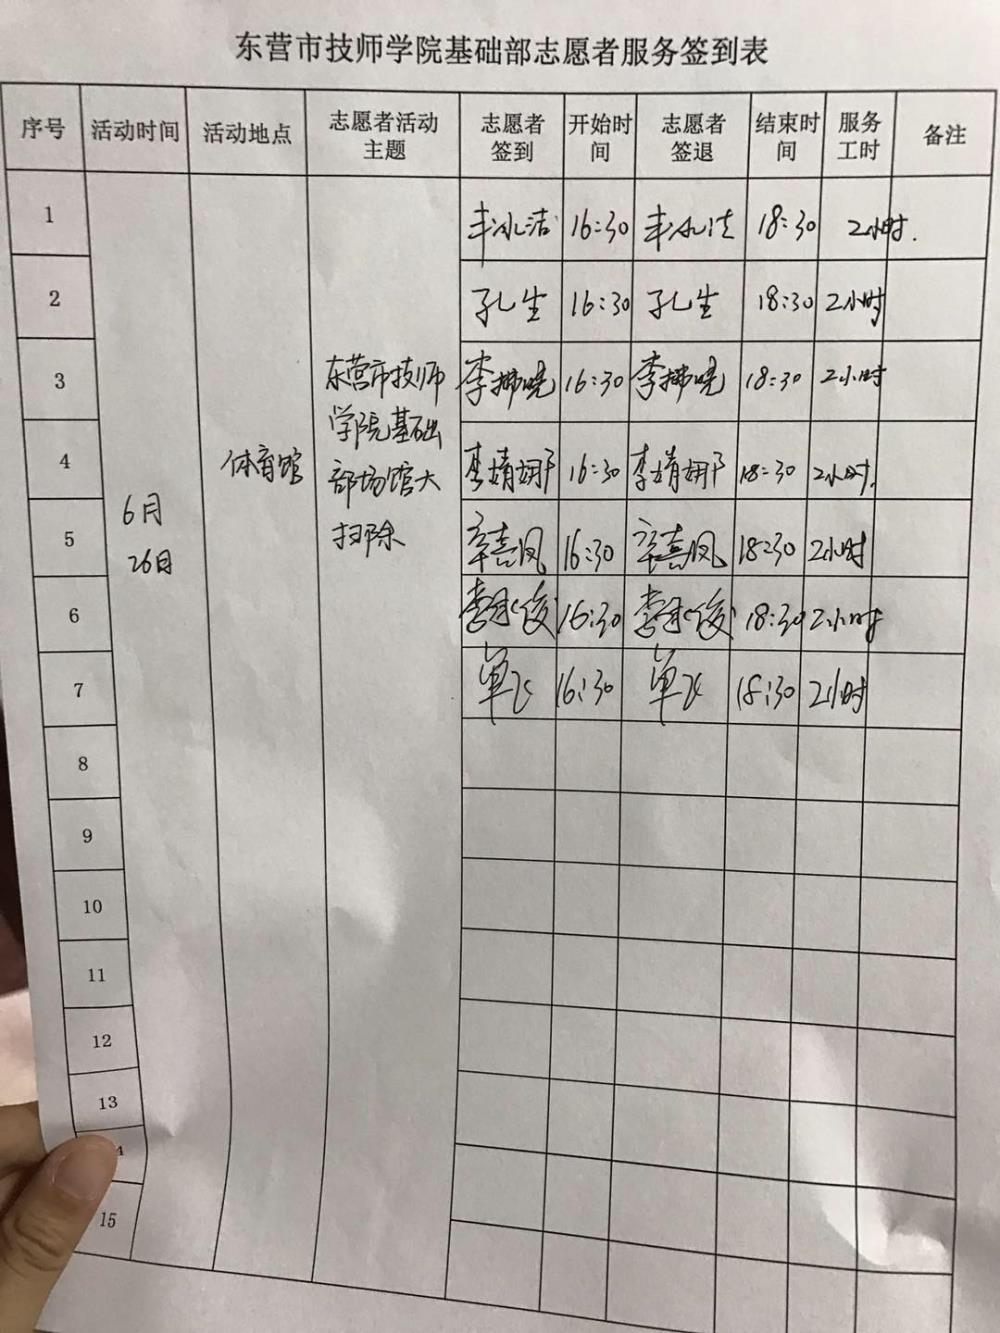 东营市技师学院基础部志愿者服务签到表
序号 活动时间 活动地点 志愿者活动主题 志愿者签到 开始时间 志愿者签退 结束时间 服务工时 备注
6月
26日
体育馆
东营市技师
学院基础
部场馆大
扫除
1 丰冰洁 16:30 丰冰洁 18:30 2小时.
2 孔生 16:30 孔生 18:30 2小时
3 李 16:30 李 18:30 2小时
4 李婧 16:30 李婧 18:30 2小时.
5 辛喜凤 16:30 辛喜凤 18:30 2小时
6 16:30 18:30 2小时
7 单飞 16:30 单飞 18:30 2小时
8
9
10
11
12
13
15